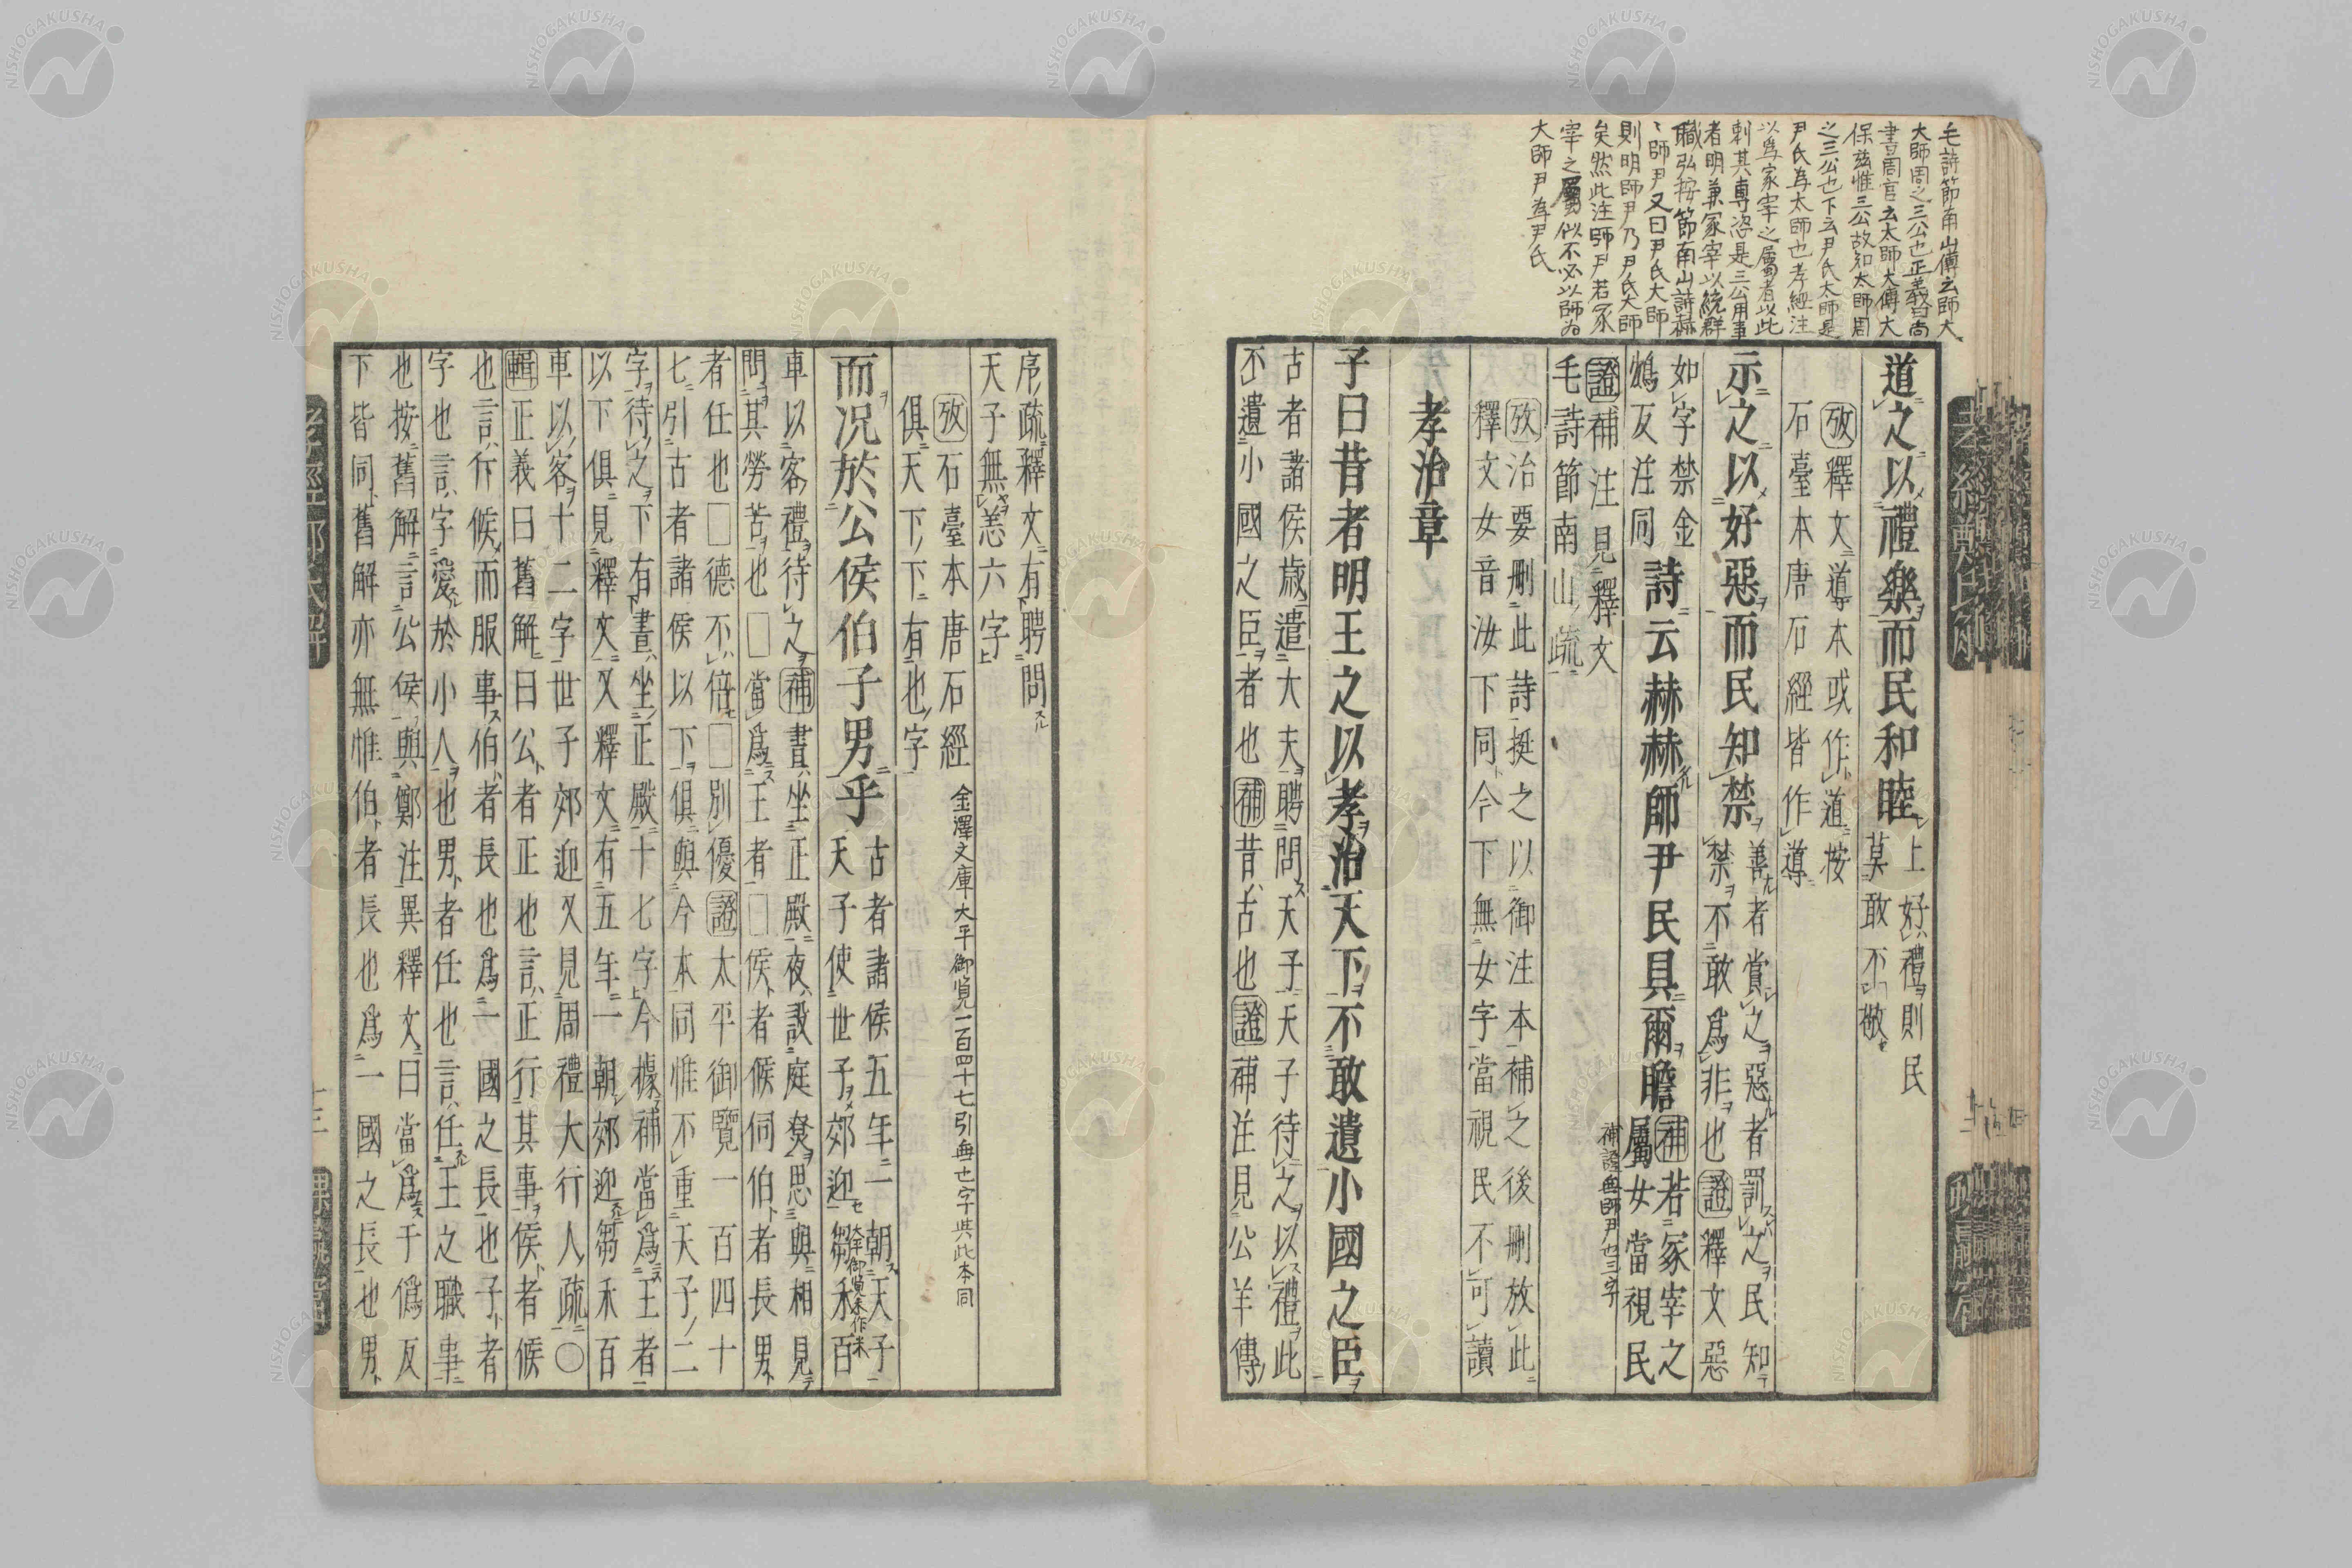 毛詩節南山傳云師大
大師周之三公也正義曰尚
書周官云太師大傅大
保茲惟三公故知太師周
之三公也下云尹氏太師是
尹氏為太師也孝經注
以為冢宰之屬者以此
刺其專恣是三公用事
者明兼冢宰以統群
職弘按節南山詩赫
〻師尹又曰尹氏大師
則明師尹乃尹氏大師
矣然此注師尹若冢
宰之屬似不必以師為
大師尹為尹氏
道之以禮樂而民和睦
上好禮則民
莫敢不敬
攷釋文道本或作道按
石臺本唐石經皆作導
示之以好惡而民知禁
善者賞之惡者罰之民知
禁不敢為非也證釋文惡
如字禁金
鴆反注同
詩云赫赫師尹民具爾瞻
補若冢宰之
屬女當視民
補證無師尹也三字
證補注見釋文
毛詩節南山疏
攷治要刪此詩挺之以御注本補之後刪放此
釋文女音汝下同今下無女字當視民不可讀
孝治章
子曰昔者明王之以孝治天下不敢遺小國之臣
古者諸侯歲遣大夫聘問天子天子待之以禮此
不遺小國之臣者也補昔古也證補注見公羊傳
序疏釋文有聘問
天子無恙六字
攷石臺本唐石經
俱天下下有也字
金澤文庫大平御覽一百四十七引無也字與此本同
而況於公侯伯子男乎
古者諸侯五年一朝天子
天子使世子郊迎芻禾百
太平御覽禾作米
車以客禮待之補晝坐正殿夜設庭燎思與相見
問其勞苦也□當為王者□侯者候伺伯者長男
者任也□德不倍□別優證太平御覽一百四十
七引古者諸侯以下俱與今本同惟不重天子二
字待之下有晝坐正殿十七字今據補當為王者
以下俱見釋文又釋文有五年一朝郊迎芻禾百
車以客十二字世子郊迎又見周禮大行人疏○
輯正義曰舊解曰公者正也言正行其事侯者候
也言斥候而服事伯者長也為一國之長也子者
字也言字愛於小人也男者任也言任王之職事
也按舊解言公侯與鄭注異釋文曰當為于偽反
下皆同舊解亦無惟伯者長也為一國之長也男